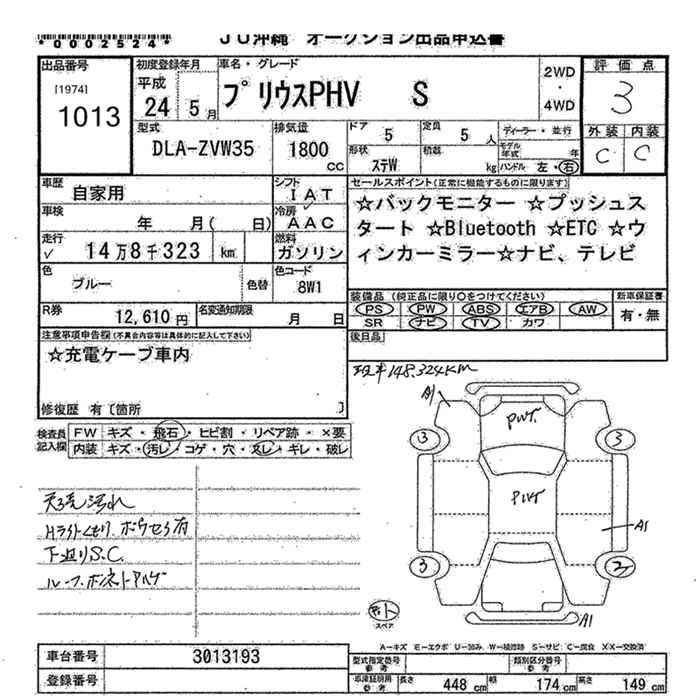 *0002524*
JU沖縄 オークション出品申込書
出品番号
[1974]
1013
初度登録年月
平成
24 5月
車名・グレード
プリウスPHV S
2WD
・
4WD
評価点
3
外装 内装
C C
型式
DLA-ZVW35
排気量
1800
cc
ドア 5
定員 5人
ディーラー・並行
形状
ステW
積載 kg
モデル年式 年
ハンドル 左・右
車歴
自家用
シフト
IAT
車検
年 月( 日)
冷房
AAC
走行
14万8千323 km
燃料
ガソリン
色
ブルー
色替
色コード
8W1
R券
12,610円
名変通知期限
月 日
セールスポイント(正常に機能するものに限ります)
☆バックモニター ☆プッシュス
タート ☆Bluetooth ☆ETC ☆ウ
ィンカーミラー☆ナビ、テレビ
装備品(純正品に限り○をつけてください)
PS PW ABS エアB AW
SR ナビ TV カワ
新車保証書
有・無
後日品
注意事項申告欄(不具合内容等は具体的に記入して下さい)
☆充電ケーブ車内
修復歴 有〔箇所 〕
現車148,324KM
検査員
記入欄
FW キズ・飛石・ヒビ割・リペア跡・×要
内装 キズ・汚レ・コゲ・穴・スレ・ギレ・破レ
天張汚れ
Hライトくもり、ボウセう有
下廻りS.C.
ルーフ、ボネトハゲ
A1
PWT.
3
3
PWT
A1
3
2
スペア
A1
A−キズ E−エクボ U−凹み W−補修跡 S−サビ C−腐食 XX−交換済
車台番号
3013193
登録番号
型式指定番号
参考
類別区分番号
参考
車庫証明用
参考
長さ 448 cm
幅 174 cm
高さ 149 cm